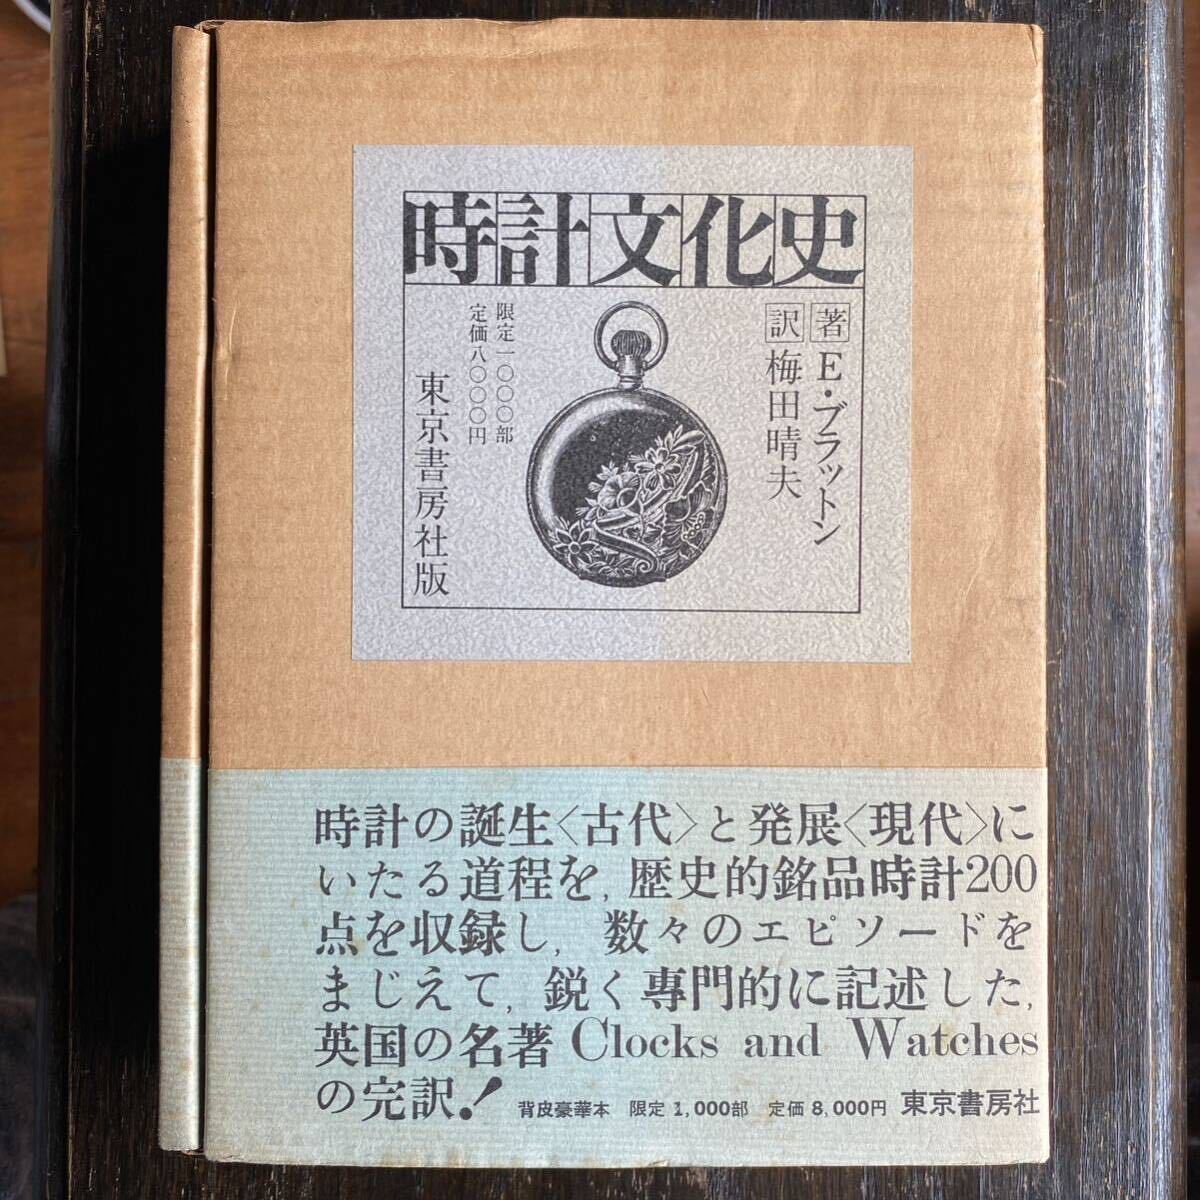 時計文化史
著 E・ブラットン
訳 梅田晴夫
限定一〇〇〇部
定価八〇〇〇円
東京書房社版
時計の誕生〈古代〉と発展〈現代〉に
いたる道程を,歴史的銘品時計200
点を収録し,数々のエピソードを
まじえて,鋭く専門的に記述した,
英国の名著 Clocks and Watches
の完訳!
背皮豪華本 限定1,000部 定価8,000円 東京書房社